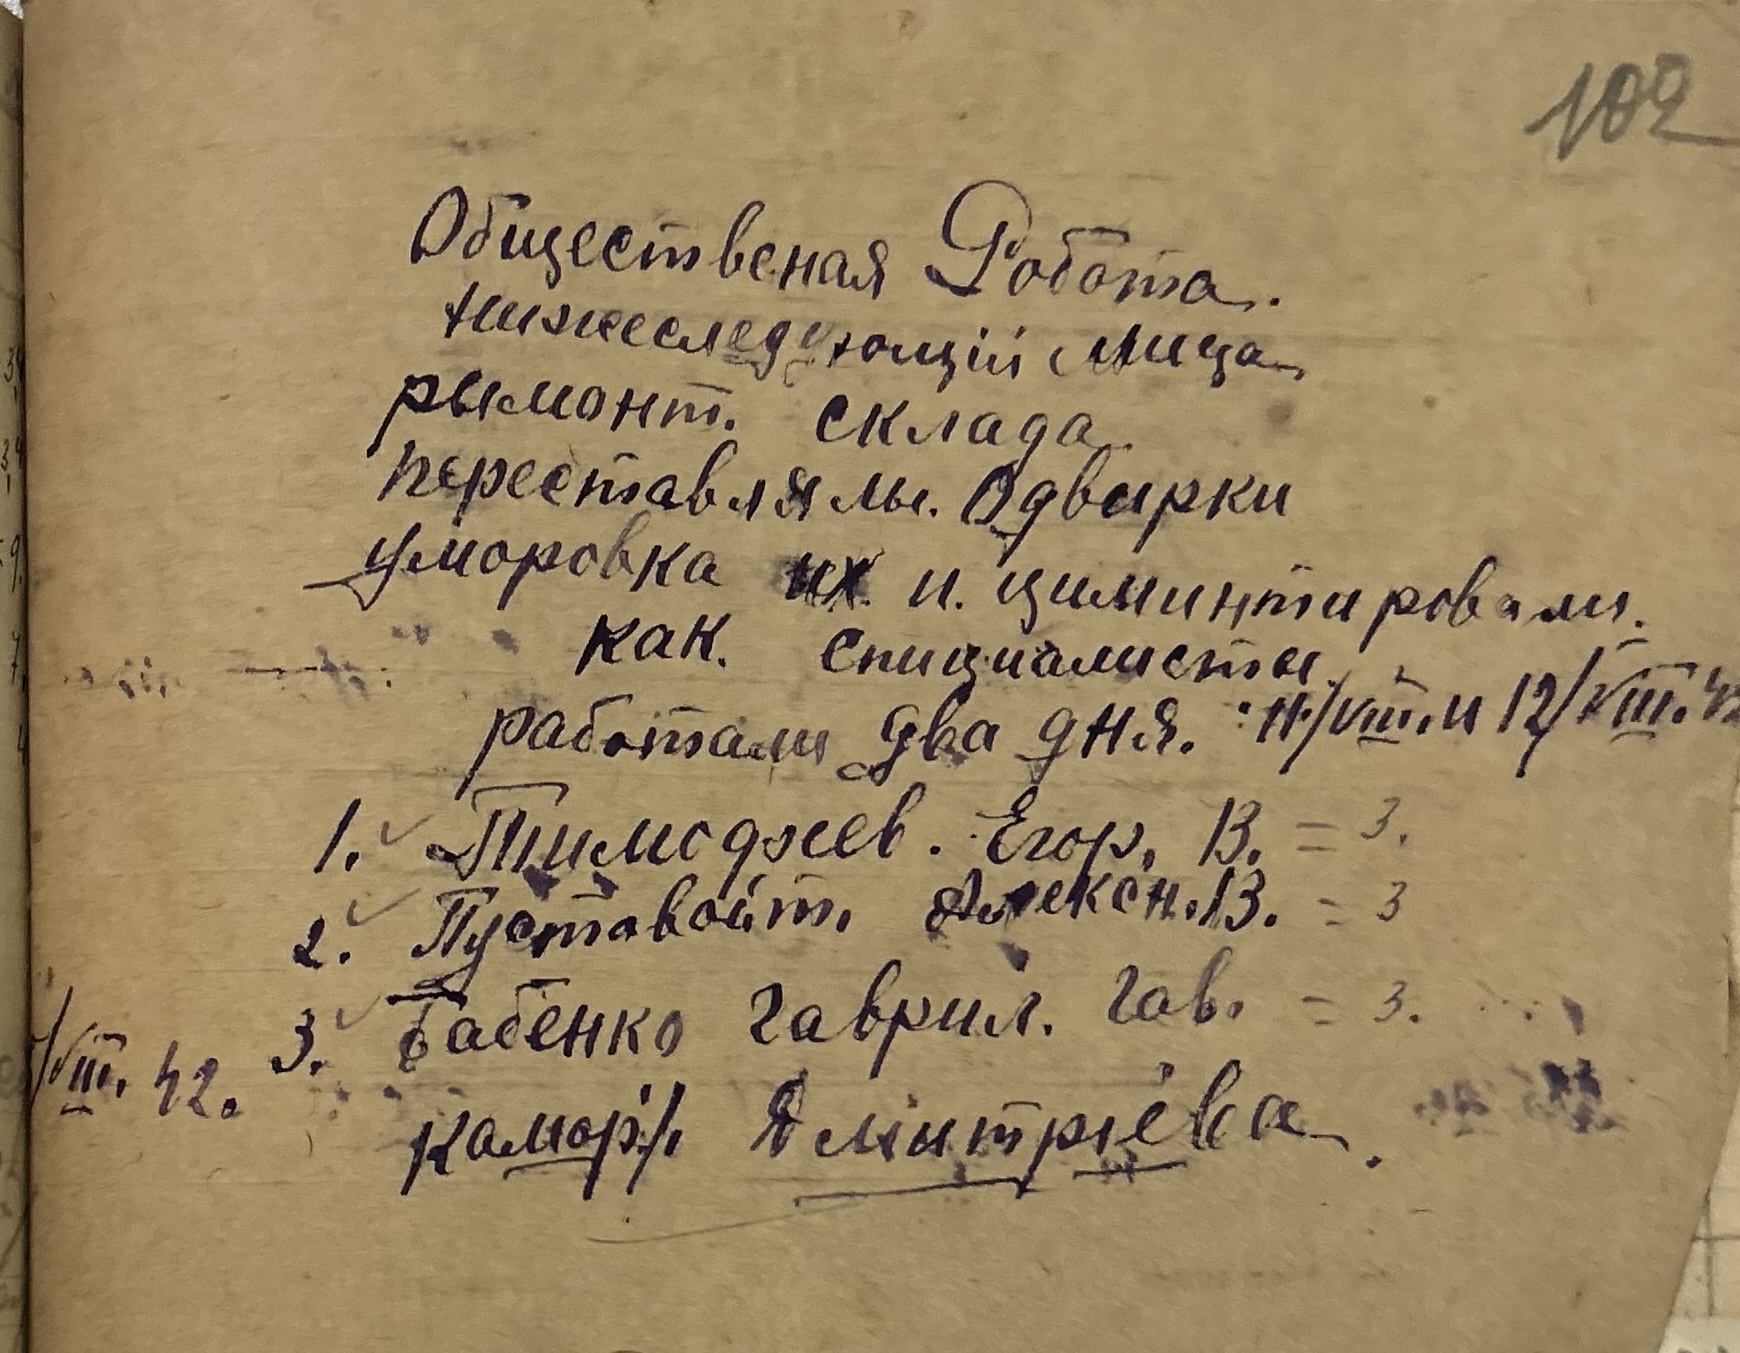 102
Обществ​еная Робота.
Нижеследующій Лица
рымонт. склада
переставлялы. Одвирки
уморовка их и. циминтировали.
как. спицыалисты.
работали два дня. 11/VIII. и 12/VIII. 42
1. Тимофеев. Егор. В. = 3.
2. Пустовойт. Алексн. В. = 3
3. Бабенко Гаврил. Гав. = 3.
/VIII. 42.
Камор/. Дмитріева.